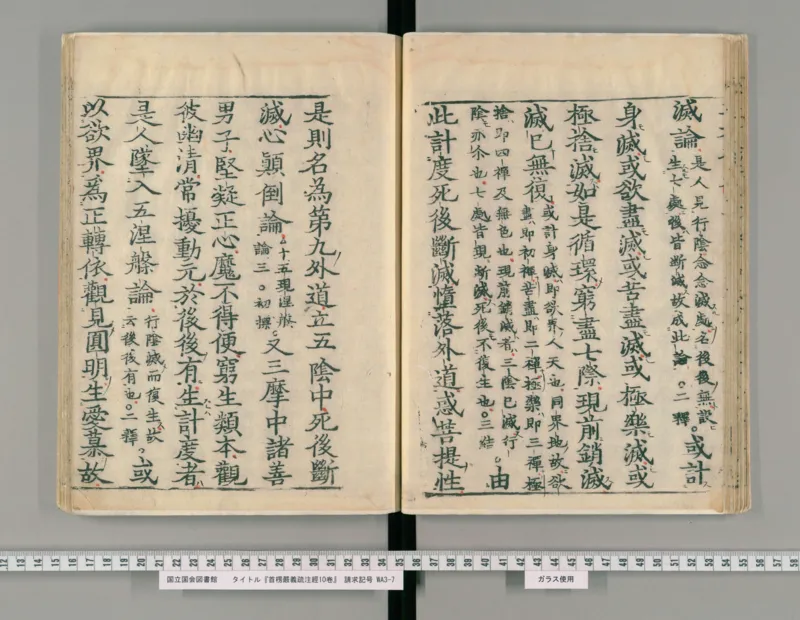 滅論
是人見行陰念念滅處名後後無
生七處後皆斷滅故成此論。二釋
。或計
身滅或欲盡滅或苦盡滅或極樂滅或
極捨滅如是循環窮盡七際現前銷滅
滅已無復
或計身滅即欲界人天也同界地故欲
盡即初禪苦盡即二禪極樂即三禪極
捨即四禪及無色也現前銷滅者三陰已滅行
陰亦尓也七處皆現斷滅死後不復生也。三結
。由
此計度死後斷滅墮落外道惑菩提性
是則名為第九外道立五陰中死後斷
滅心顛倒論
十五現涅槃
論三。初標
。又三摩中諸善
男子堅凝正心魔不得便窮生類本觀
彼幽清常擾動元於後後有生計度者
是人墜入五涅槃論
行陰滅而復生故
云後後有也。二釋
。或
以欲界為正轉依觀見圓明生愛慕故
国立国会図書館 タイトル『首楞嚴義疏注經10巻』 請求記号 WA3-7
ガラス使用